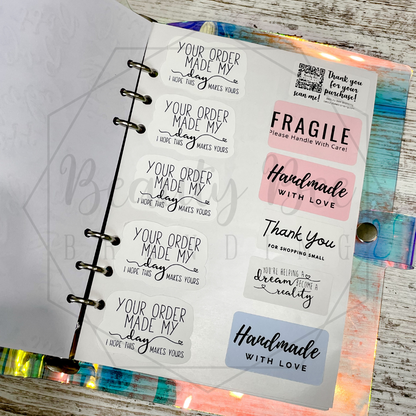 YOUR ORDER
MADE MY
day
I HOPE THIS MAKES YOURS
YOUR ORDER
MADE MY
day
I HOPE THIS MAKES YOURS
YOUR ORDER
MADE MY
day
I HOPE THIS MAKES YOURS
YOUR ORDER
MADE MY
day
I HOPE THIS MAKES YOURS
YOUR ORDER
MADE MY
day
I HOPE THIS MAKES YOURS
Thank you
for your
purchase!
scan me!
FRAGILE
Please Handle With Care!
Handmade
WITH LOVE
Thank You
FOR SHOPPING SMALL
YOU'RE HELPING A
dream BECOME A
reality
Handmade
WITH LOVE
Beauty Bee
BRANDING